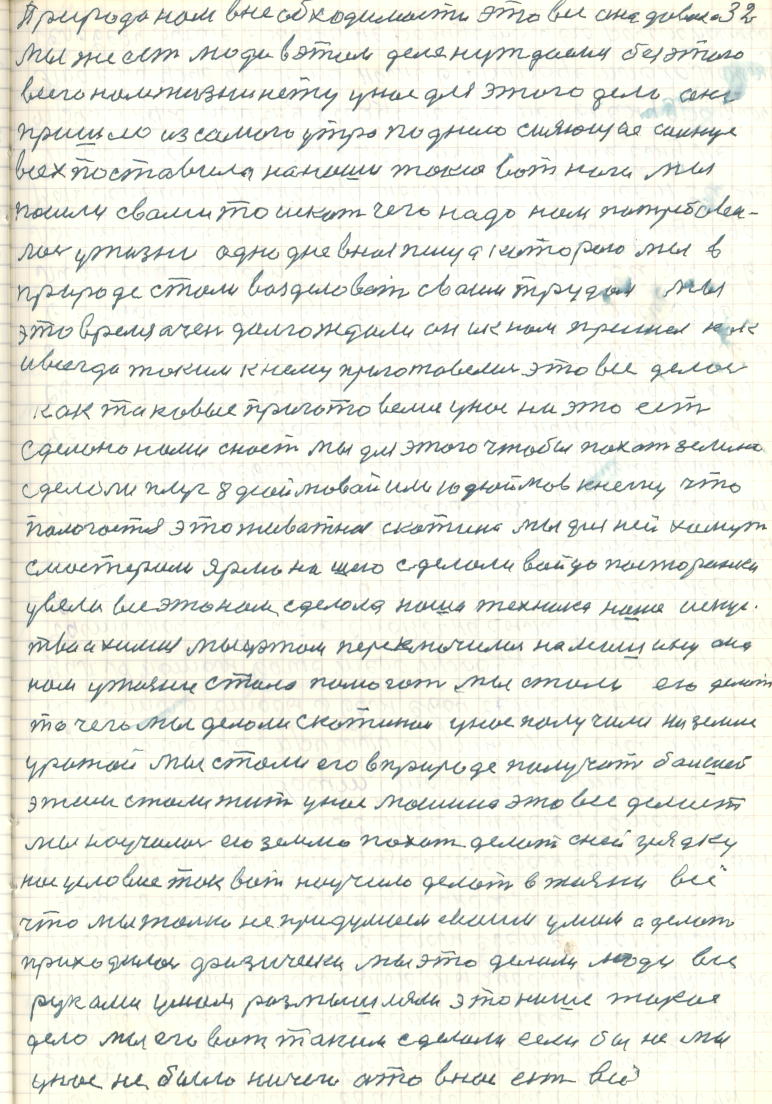 Природа нам внеобходимости это все она давала 32
мы же ест люди вэтом деле нуждаемся без этого
всего нам жизни нету унас для этого дело оно
пришло из самого утра подняло сияющае солнце
всех поставила на наши такие вот ноги мы
пошли свами то искат чего надо нам потребова-
лос ужизни однодневная пища которою мы в
природе стали возделоват своим трудом мы
это время очен долго ждали он ик нам пришел как
ивсегда таким кнему приготовелис это все делос
как таковые приготовелис унас на это ест
сделано нами снаст мы для этого чтобы пахат землю
сделали плуг 8 дюймовай или 10 дюймов кнему что
пологается это живатная скотина мы для ней хомут
смастерили ярмо на шею сделали вайдо посторонки
увели все это нам сделала наша техника наша искус.
тва ихимия мы вэтом переключилис на машину она
нам ужизне стала помогат мы стали его делат
то чего мы делали скотиной унас получили на земле
урожай мы стали его вприроде получат баисией
этим стали жит унас машина это все делает
мы научилис ею землю пахат делат с ней грядку
нас условие так вот научило делат вжизни всё
что мы толко не придумаем своим умом а делат
приходилос физически мы это делали люди все
руками умом размышляли это наше такое
дело мы его вот таким сделали если бы не мы
унас не было ничего ато внас ест всё